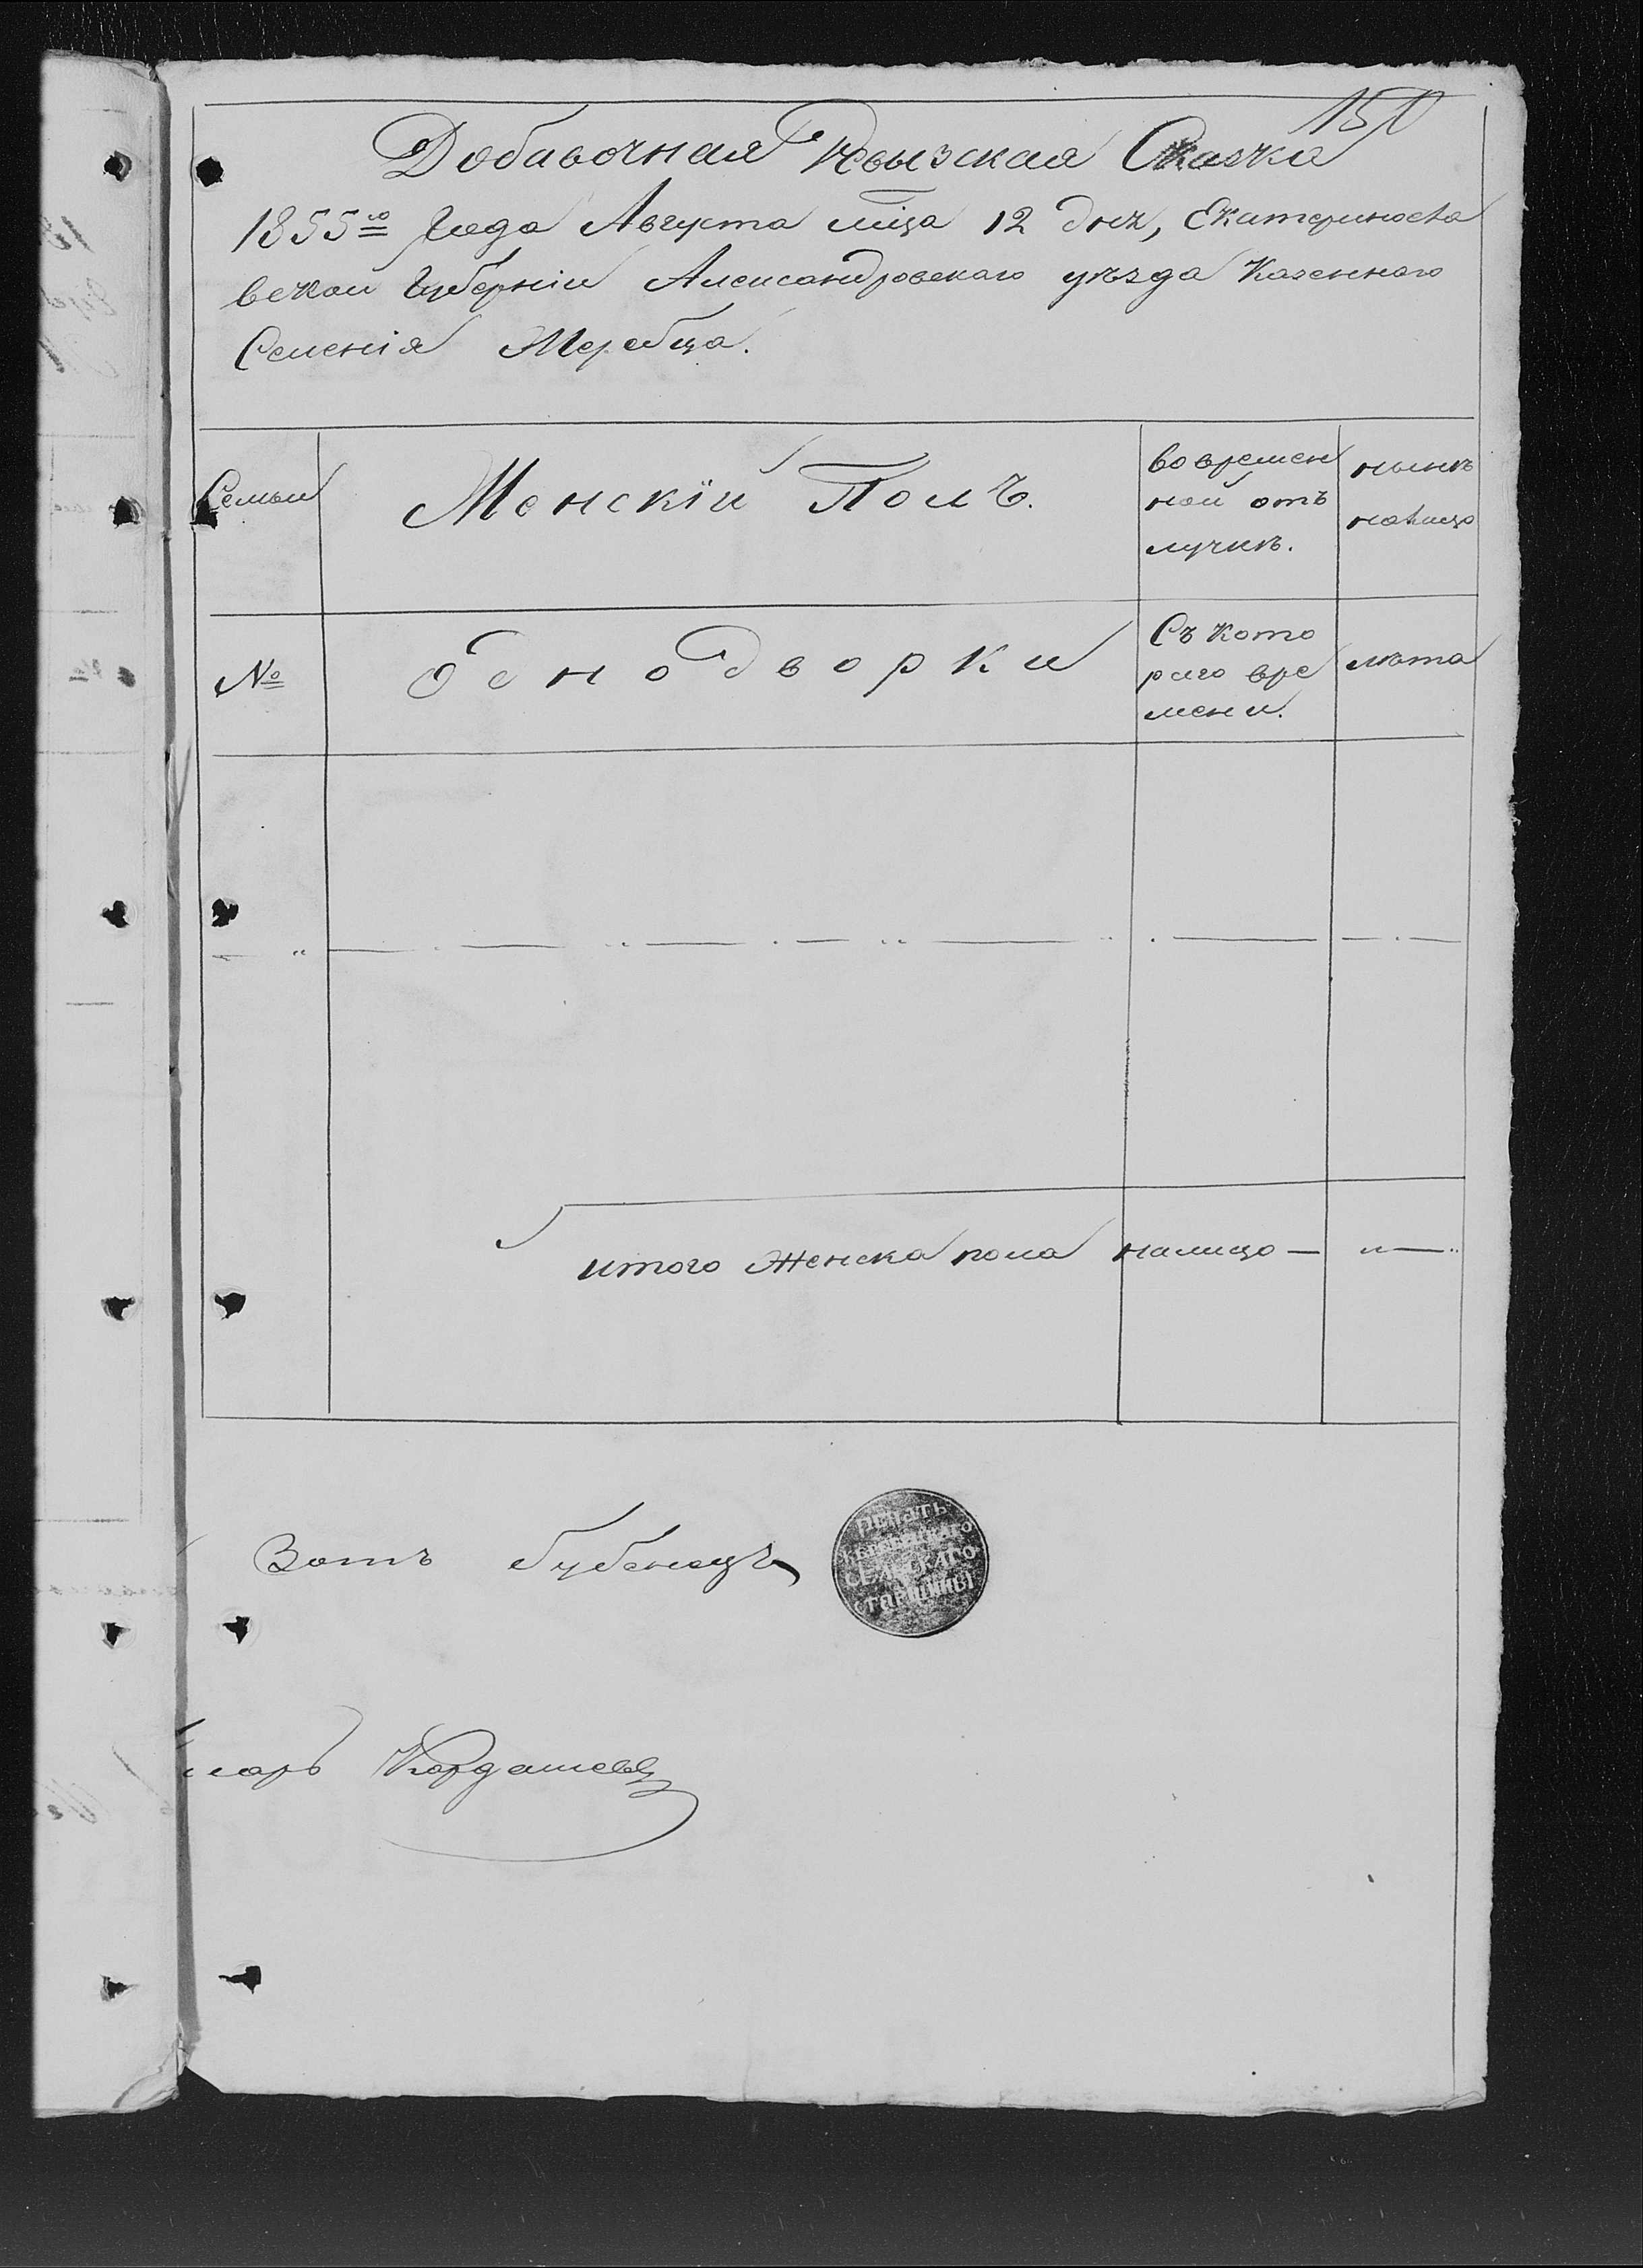 150
Добавочная Ревизская Сказка
1855го Года Августа мца 12 дня, Екатеринosла
вской Губерніи Александровскаго уѣзда Казеннаго
Селенія Жеребца.
Семьи
Женскій Полъ.
во времен
ной отъ
лучкѣ.
нынѣ
налицо
№
Однодворки
Съ кото
раго вре
мени.
лѣта
итого Женска пола налицо — " — "
Зотъ Губенецъ
ПЕЧАТЬ
СЕЛЬСКАГО
СТАРШИНЫ
сарь Кордашевъ